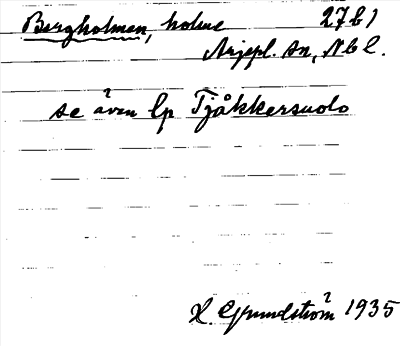 Bergholmen, holme 27 b 1
Arjepl. sn, Nbl.
se även lp Tjåkkersuolo
H. Grundström 1935